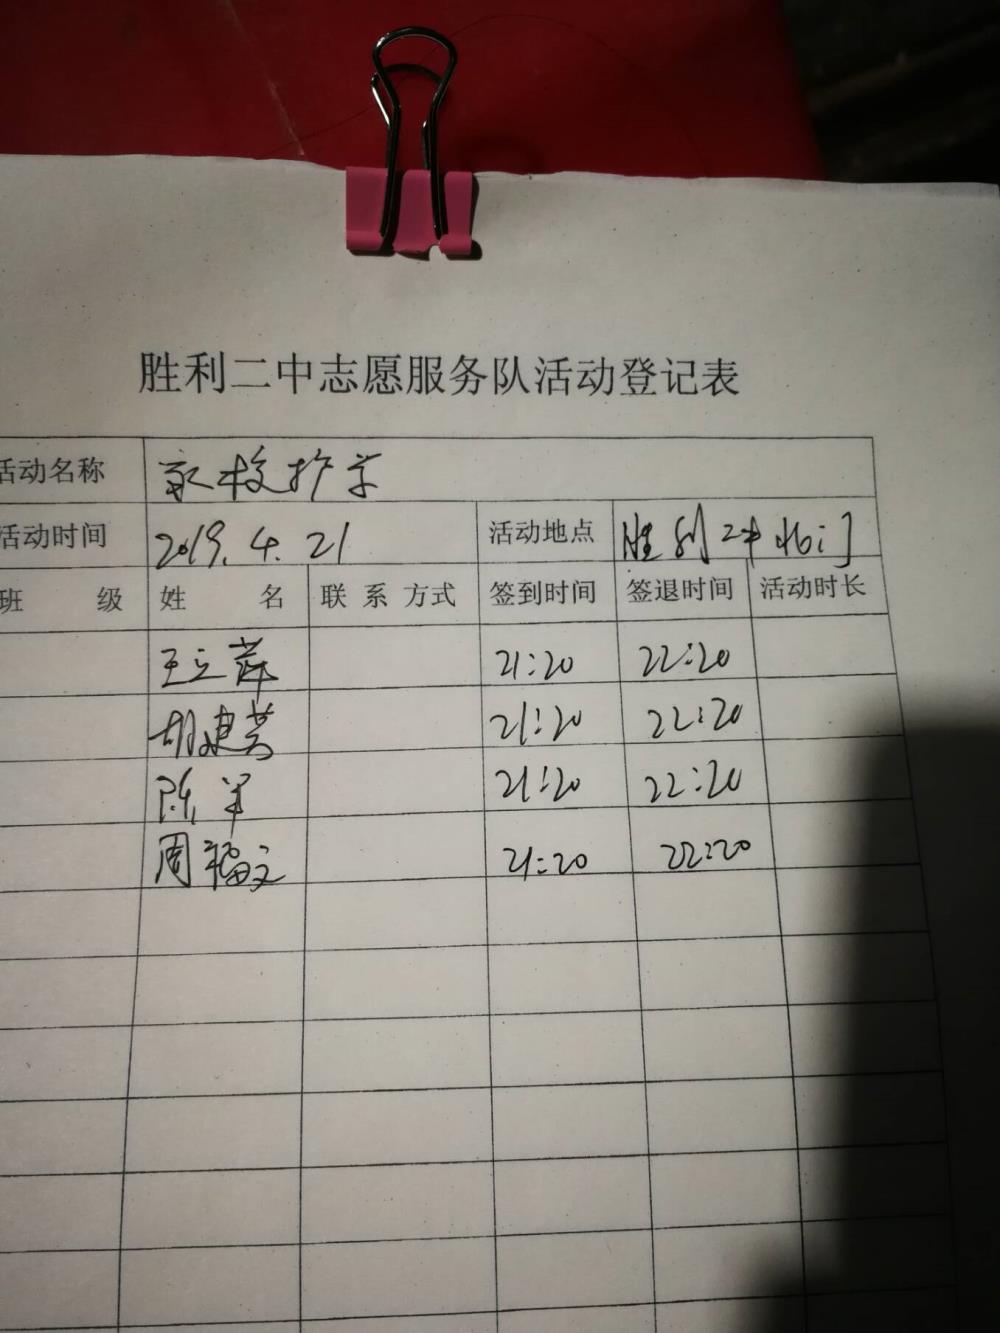 胜利二中志愿服务队活动登记表
活动名称 家校护学
活动时间 2019.4.21 活动地点 胜利二中北门
班 级 姓 名 联 系 方式 签到时间 签退时间 活动时长
王立萍 21:20 22:20
胡建芳 21:20 22:20
陈 21:20 22:20
周福文 21:20 22:20